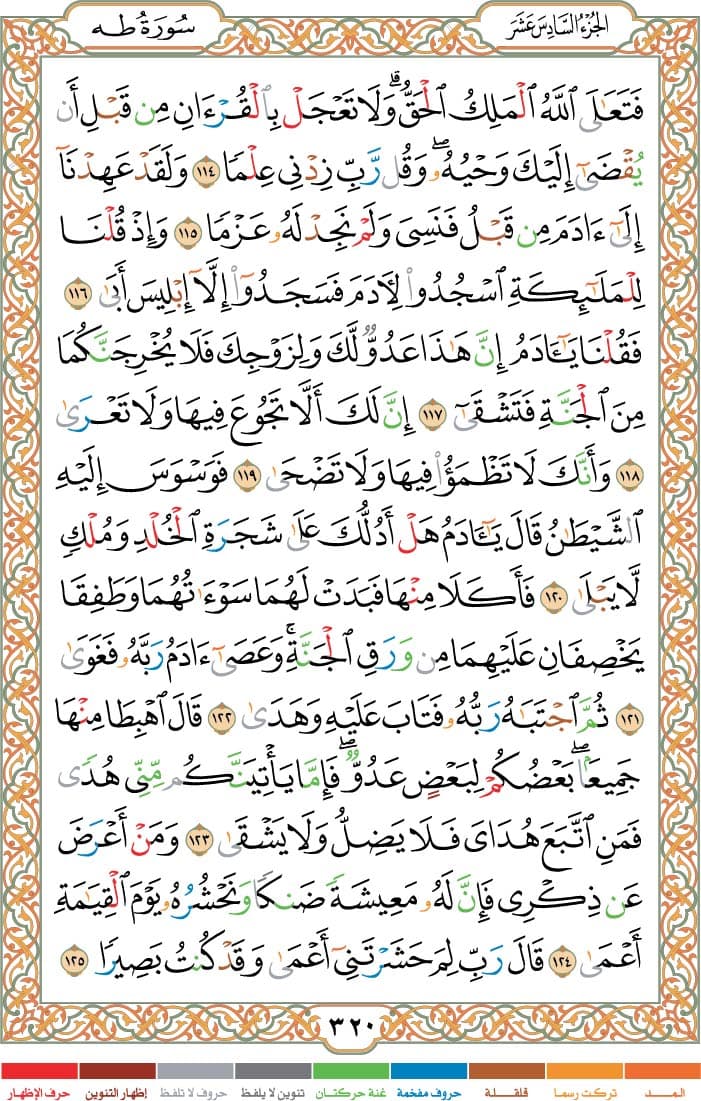 الجزء السادس عشر
سورة طه
فَتَعَٰلَى ٱللَّهُ ٱلْمَلِكُ ٱلْحَقُّ ۗ وَلَا تَعْجَلْ بِٱلْقُرْءَانِ مِن قَبْلِ أَن
يُقْضَىٰٓ إِلَيْكَ وَحْيُهُۥ ۖ وَقُل رَّبِّ زِدْنِى عِلْمًا ١١٤ وَلَقَدْ عَهِدْنَآ
إِلَىٰٓ ءَادَمَ مِن قَبْلُ فَنَسِىَ وَلَمْ نَجِدْ لَهُۥ عَزْمًا ١١٥ وَإِذْ قُلْنَا
لِلْمَلَٰٓئِكَةِ ٱسْجُدُوا۟ لِءَادَمَ فَسَجَدُوٓا۟ إِلَّآ إِبْلِيسَ أَبَىٰ ١١٦
فَقُلْنَا يَٰٓـَٔادَمُ إِنَّ هَٰذَا عَدُوٌّ لَّكَ وَلِزَوْجِكَ فَلَا يُخْرِجَنَّكُمَا
مِنَ ٱلْجَنَّةِ فَتَشْقَىٰٓ ١١٧ إِنَّ لَكَ أَلَّا تَجُوعَ فِيهَا وَلَا تَعْرَىٰ
١١٨ وَأَنَّكَ لَا تَظْمَؤُا۟ فِيهَا وَلَا تَضْحَىٰ ١١٩ فَوَسْوَسَ إِلَيْهِ
ٱلشَّيْطَٰنُ قَالَ يَٰٓـَٔادَمُ هَلْ أَدُلُّكَ عَلَىٰ شَجَرَةِ ٱلْخُلْدِ وَمُلْكٍ
لَّا يَبْلَىٰ ١٢٠ فَأَكَلَا مِنْهَا فَبَدَتْ لَهُمَا سَوْءَٰتُهُمَا وَطَفِقَا
يَخْصِفَانِ عَلَيْهِمَا مِن وَرَقِ ٱلْجَنَّةِ ۚ وَعَصَىٰٓ ءَادَمُ رَبَّهُۥ فَغَوَىٰ
١٢١ ثُمَّ ٱجْتَبَٰهُ رَبُّهُۥ فَتَابَ عَلَيْهِ وَهَدَىٰ ١٢٢ قَالَ ٱهْبِطَا مِنْهَا
جَمِيعًۢا ۖ بَعْضُكُمْ لِبَعْضٍ عَدُوٌّ ۖ فَإِمَّا يَأْتِيَنَّكُم مِّنِّى هُدًى
فَمَنِ ٱتَّبَعَ هُدَاىَ فَلَا يَضِلُّ وَلَا يَشْقَىٰ ١٢٣ وَمَنْ أَعْرَضَ
عَن ذِكْرِى فَإِنَّ لَهُۥ مَعِيشَةً ضَنكًا وَنَحْشُرُهُۥ يَوْمَ ٱلْقِيَٰمَةِ
أَعْمَىٰ ١٢٤ قَالَ رَبِّ لِمَ حَشَرْتَنِىٓ أَعْمَىٰ وَقَدْ كُنتُ بَصِيرًا ١٢٥
٣٢٠
المـــد تركت رسما قلقلة حروف مفخمة غنة حركتان تنوين لا يلفظ حروف لا تلفظ إظهار التنوين حرف الإظهار